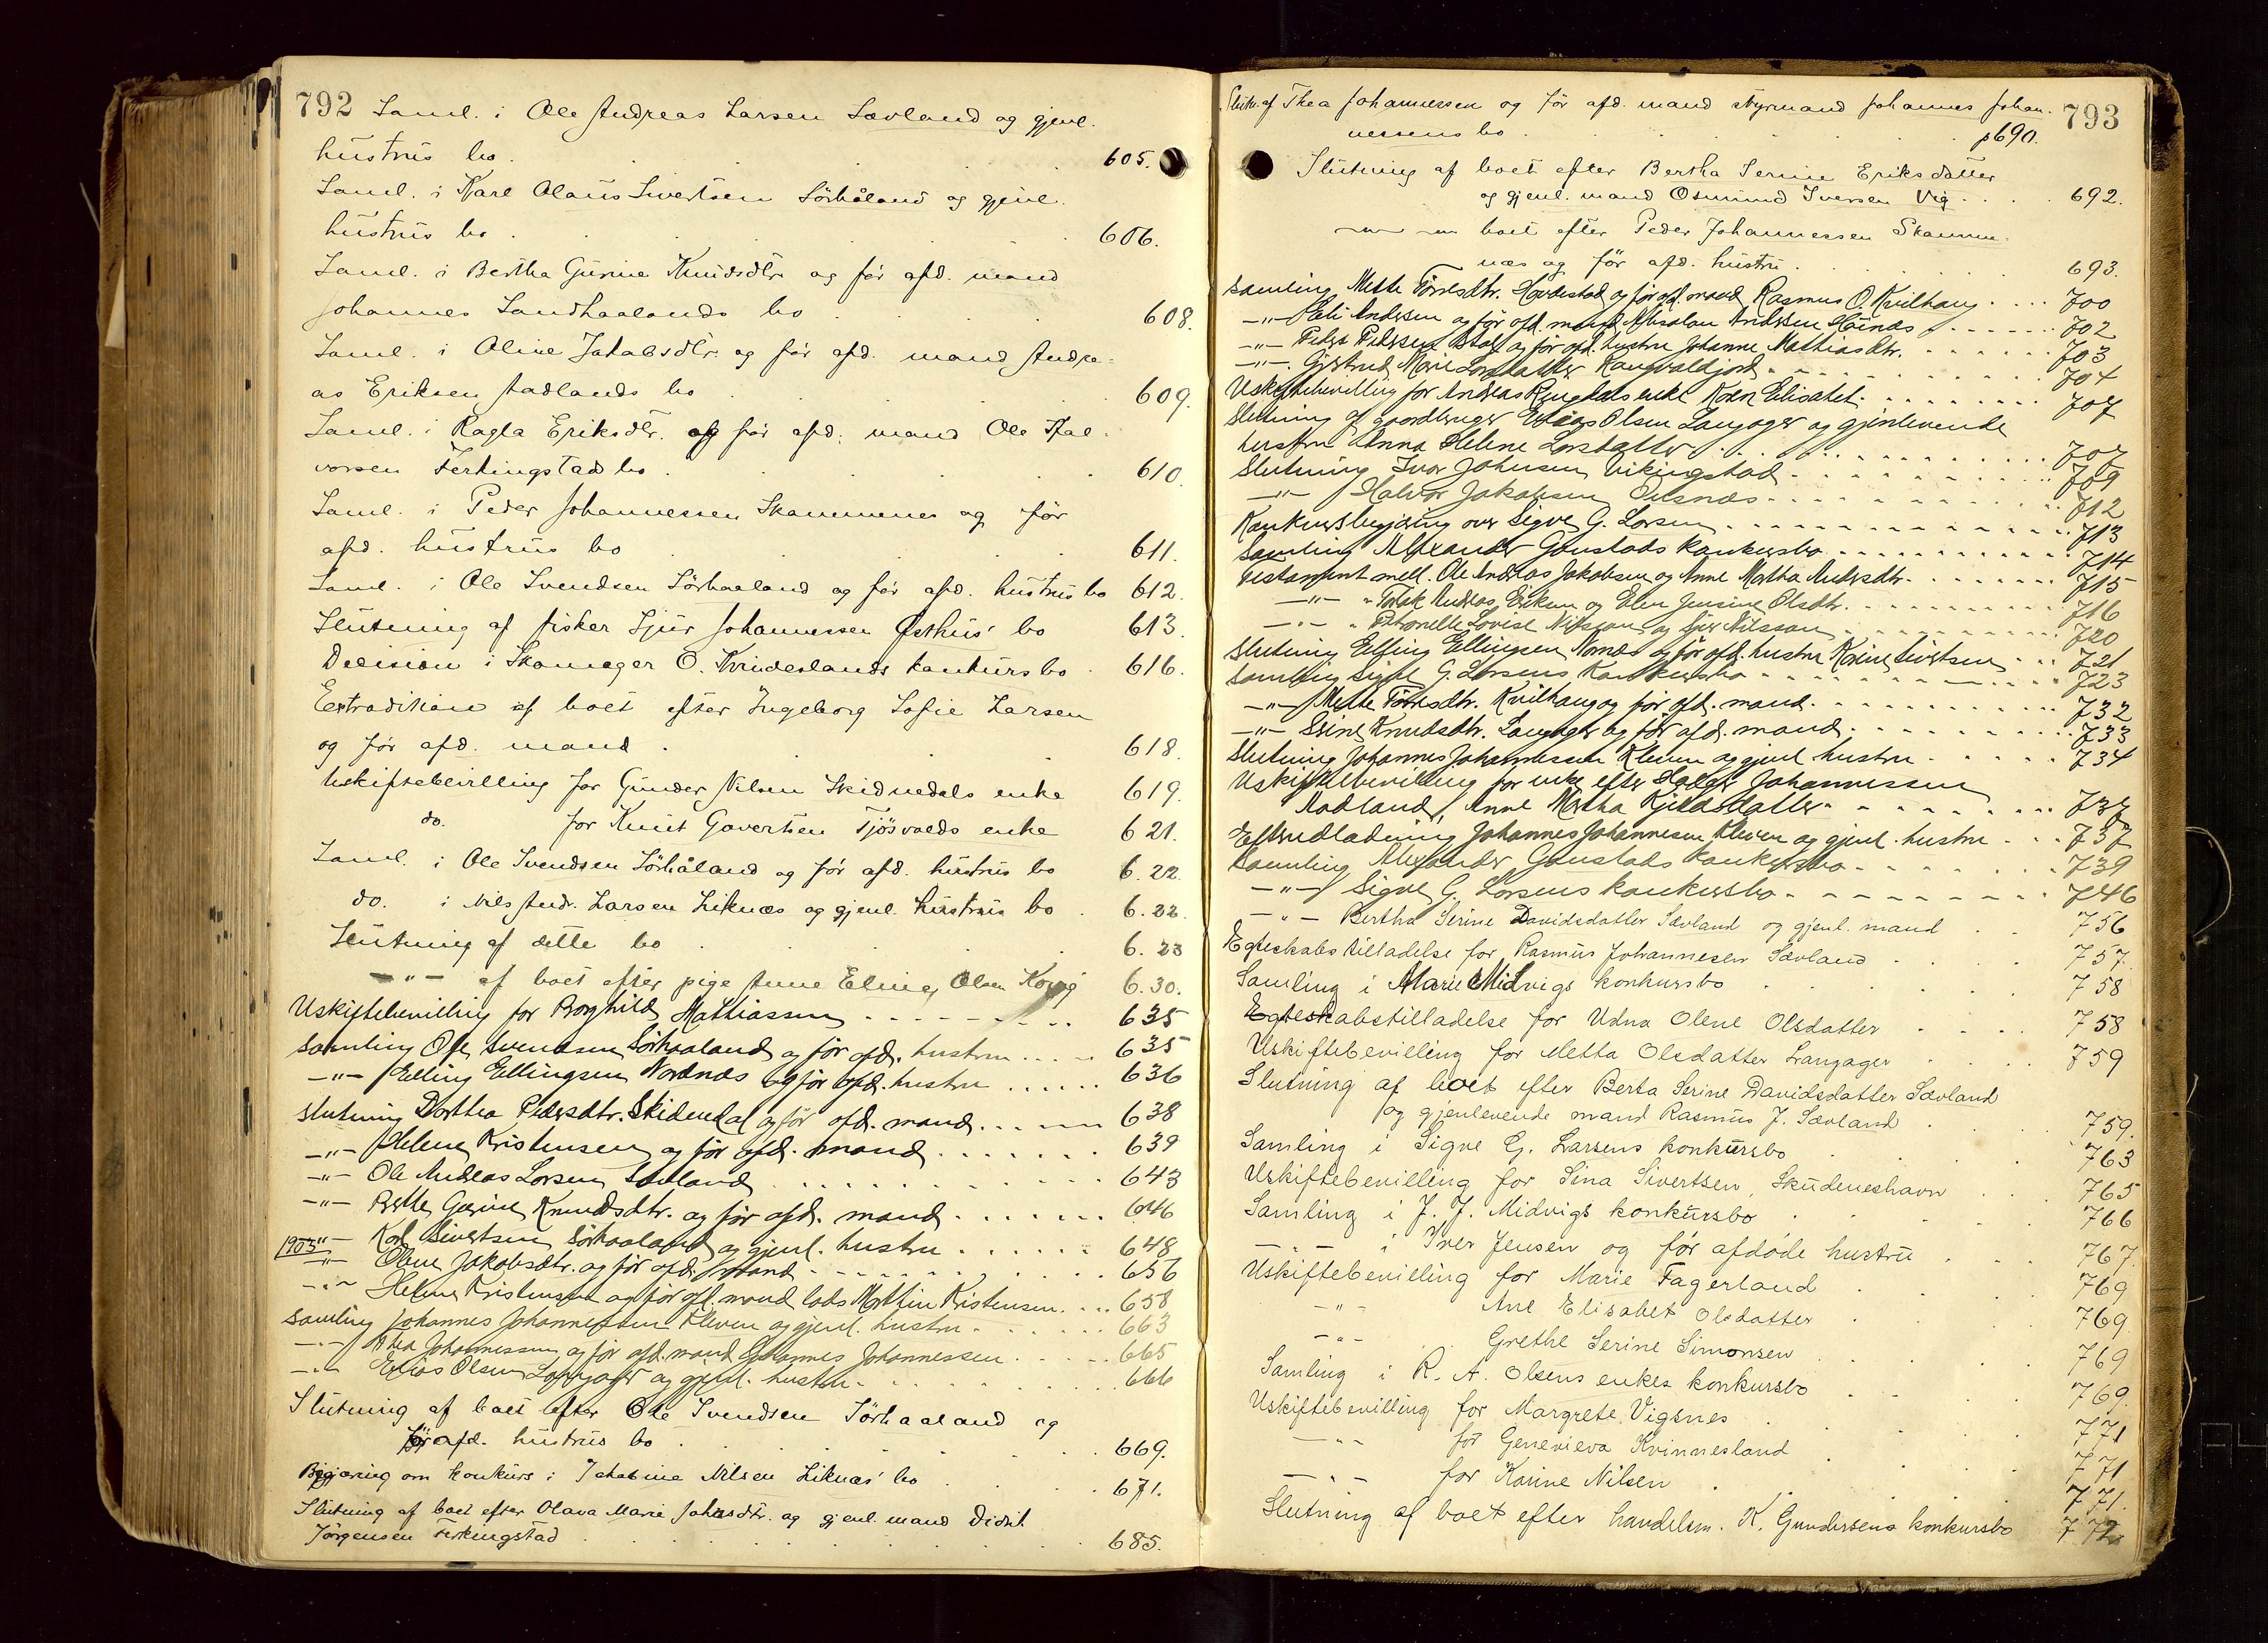 792 Saml. i Ole Andreas Larsen Sævland og gjenl.
hustrus bo . 605.
Saml. i Karl Olaus Sivertsen Sörhåland og gjenl.
hustrus bo . 606.
Saml. i Bertha Gurine Knudsdtr. og før afd. mand
Johannes Sandhaalands bo . 608.
Saml. i Oline Jakobsdtr. og før afd. mand Andre-
as Eriksen Aadlands bo . 609.
Saml. i Ragla Eriksdtr. og før afd. mand Ole Hal-
vorsen Ferkingstads bo . 610.
Saml. i Peder Johannessen Skammenes og før
afd. hustrus bo 611.
Saml. i Ole Svendsen Sörhaaland og før afd. hustrus bo 612.
Slutning af fisker Sjur Johannessen Østhus' bo 613.
Decision i Skomager O. Kvindeslands konkursbo . 616.
Extradition af boet efter Ingeborg Sofie Larsen
og før afd. mand . 618.
Uskiftebevilling for Gunder Nilsen Skidnedals enke 619.
do. for Knut Govertsen Tjösvolds enke 621.
Saml. i Ole Svendsen Sörhåland og før afd. hustrus bo 6.22.
do. i Nils Andr. Larsen Liknæs og gjenl. hustrus bo . 6.22.
Slutning af dette bo . 6.23
—"— af boet efter pige Anne Eline Olsen 6.30.
Uskiftebevilling for Borghild Mathiassen 635
Samling Ole Svendsen Sörhaaland og før afd. hustru 635
—"— Elling Ellingsen Nordnæs og før afd. hustru 636
Slutning Dorthea Pedersdtr. Skidendal og før afd. mand 638
—"— Helene Kristensen og før afd. mand 639
—"— Ole Andreas Larsen Sævland 643
—"— Berthe Gurine Knudsdtr. og før afd. mand 646
1903 —"— Karl Sivertsen Sörhaaland og gjenl. hustru 648
—"— Oline Jakobsdtr. og før afd. mand 656
—"— Helene Kristensen og før afd. mand lods Mathias Kristensen 658
Samling Johannes Johannessen Kleven og gjenl. hustru 663
—"— Thea Johannessen og før afd. mand Johannes Johannessen 665
—"— Elias Olsen Langager og gjenl. hustru 666
Slutning af boet efter Ole Svendsen Sörhaaland og
før afd. hustrus bo . 669.
Begjæring om konkurs i Jakobine Nilsen Liknæs' bo . 671.
Slutning af boet efter Olava Marie Johnsdtr. og gjenl. mand Didrik
Jörgensen Ferkingstad . 685.
Slutn. af Thea Johannessen og før afd. mand styrmand Johannes Johan- 793
nessens bo . p690.
Slutning af boet efter Bertha Serine Eriksdatter
og gjenl. mand Osmund Iversen Vig . 692.
—"— —"— boet efter Peder Johannessen Skamme-
næs og før afd. hustru . 693.
Samling Mette Törresdtr. Hovdestad og før afd. mand Rasmus O. Kvilhaug 700
—"— Andersen og før afd. mand Absalon Andersen 702
—"— Peder Pedersen og før afd. hustru Johanne Mathiasdtr. 703
—"— Gjertrud Marie Larsdatter Rangvaldjord 704
Uskiftebevilling for Andreas Ringdals enke Karen Elisabet 707
Slutning af gaardbruger Elias Olsen Langager og gjenlevende
hustru Anna Helene Larsdatter 707
Slutning Ivar Johnsen Vikingstad 709
—"— Halvor Jakobsen Visnæs 712
Konkursbegjæring over Sigve G. Larsen 713
Samling Alexander Gaustads konkursbo 714
Testament mell. Ole Andreas Jakobsen og Anne Martha Andersdtr. 715
—"— " Andreas Eriksen og Elen Jensine Olsdtr. 716
—"— " Lovise Nilsson og Nilsson 720
Slutning Elling Ellingsen Nornæs og før afd. hustru Karine Sivertsen 721
Samling Sigve G. Larsens konkursbo 723
—"— Mette Törresdtr. Kvilhaug og før afd. mand 732
—"— Sine Knudsdtr. Langager og før afd. mand 733
Slutning Johannes Johannessen Kleven og gjenl. hustru 734
Uskiftebevilling for enke efter Holger Johannessen
Aadland, Anne Martha Kjeldsdatter 737
Efterudladning Johannes Johannessen Kleven og gjenl. hustru 737
Samling Alexander Gaustads konkursbo 739
—"— Sigve G. Larsens konkursbo 746
—"— Bertha Serine Davidsdatter Sævland og gjenl. mand . 756
Egteskabstilladelse for Rasmus Johannesen Sævland . 757.
Samling i Marie Midvigs konkursbo . 758
Egteskabstilladelse for Udna Olene Olsdatter . 758
Uskiftebevilling for Metta Olsdatter Langager . 759
Slutning af boet efter Berta Serine Davidsdatter Sævland
og gjenlevende mand Rasmus J. Sævland . 759.
Samling i Sigve G. Larsens konkursbo . 763
Uskiftebevilling for Sina Sivertsen, Skudeneshavn . 765
Samling i J. J. Midvigs konkursbo . 766
—"— i Iver Jensen og før afdøde hustru . 767.
Uskiftebevilling for Marie Fagerland . 769
—"— Ane Elisabet Olsdatter . 769
—"— Grethe Serine Simonsen . 769
Samling i R. A. Olsens enkes konkursbo . 769.
Uskiftebevilling for Margrete Vigsnes . 771
—"— for Genevieva Kvinnesland . 771
—"— for Karine Nilsen . 771.
Slutning af boet efter handelsm. K. Gundersens konkursbo 772